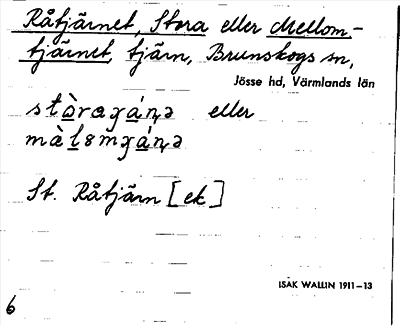 Råtjärnet, Stora eller Mellom-
tjärnet, tjärn, Brunskogs sn,
Jösse hd, Värmlands län
eller
St. Råtjärn [ek]
ISAK WALLIN 1911–13
6